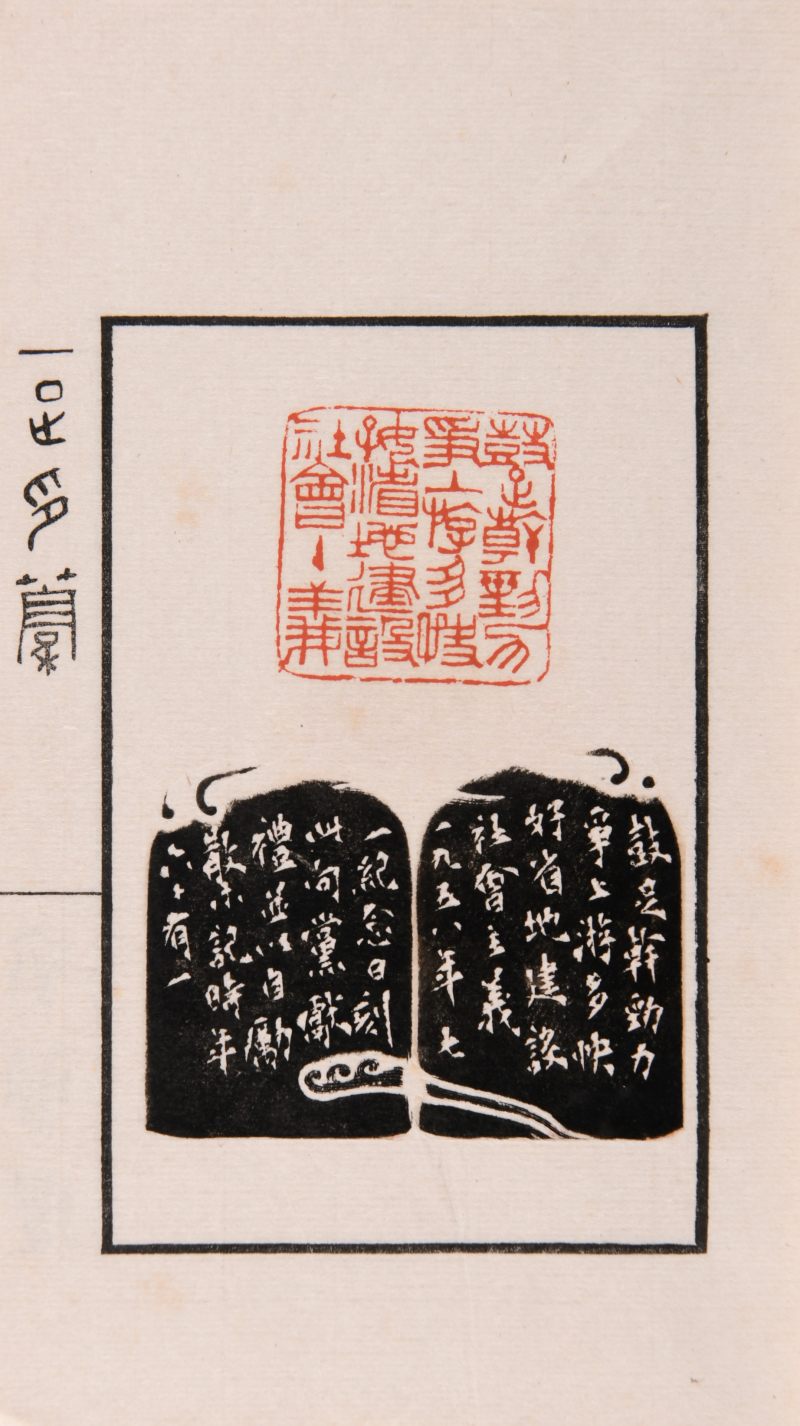 鼓足幹勁力
爭上游多快
好省地建設
社會主義
鼓足幹勁力
爭上游多快
好省地建設
社會主義
一九五八年七
一紀念日刻
此向黨獻
禮並以自勵
散木記時年
六十有一
一足印藁